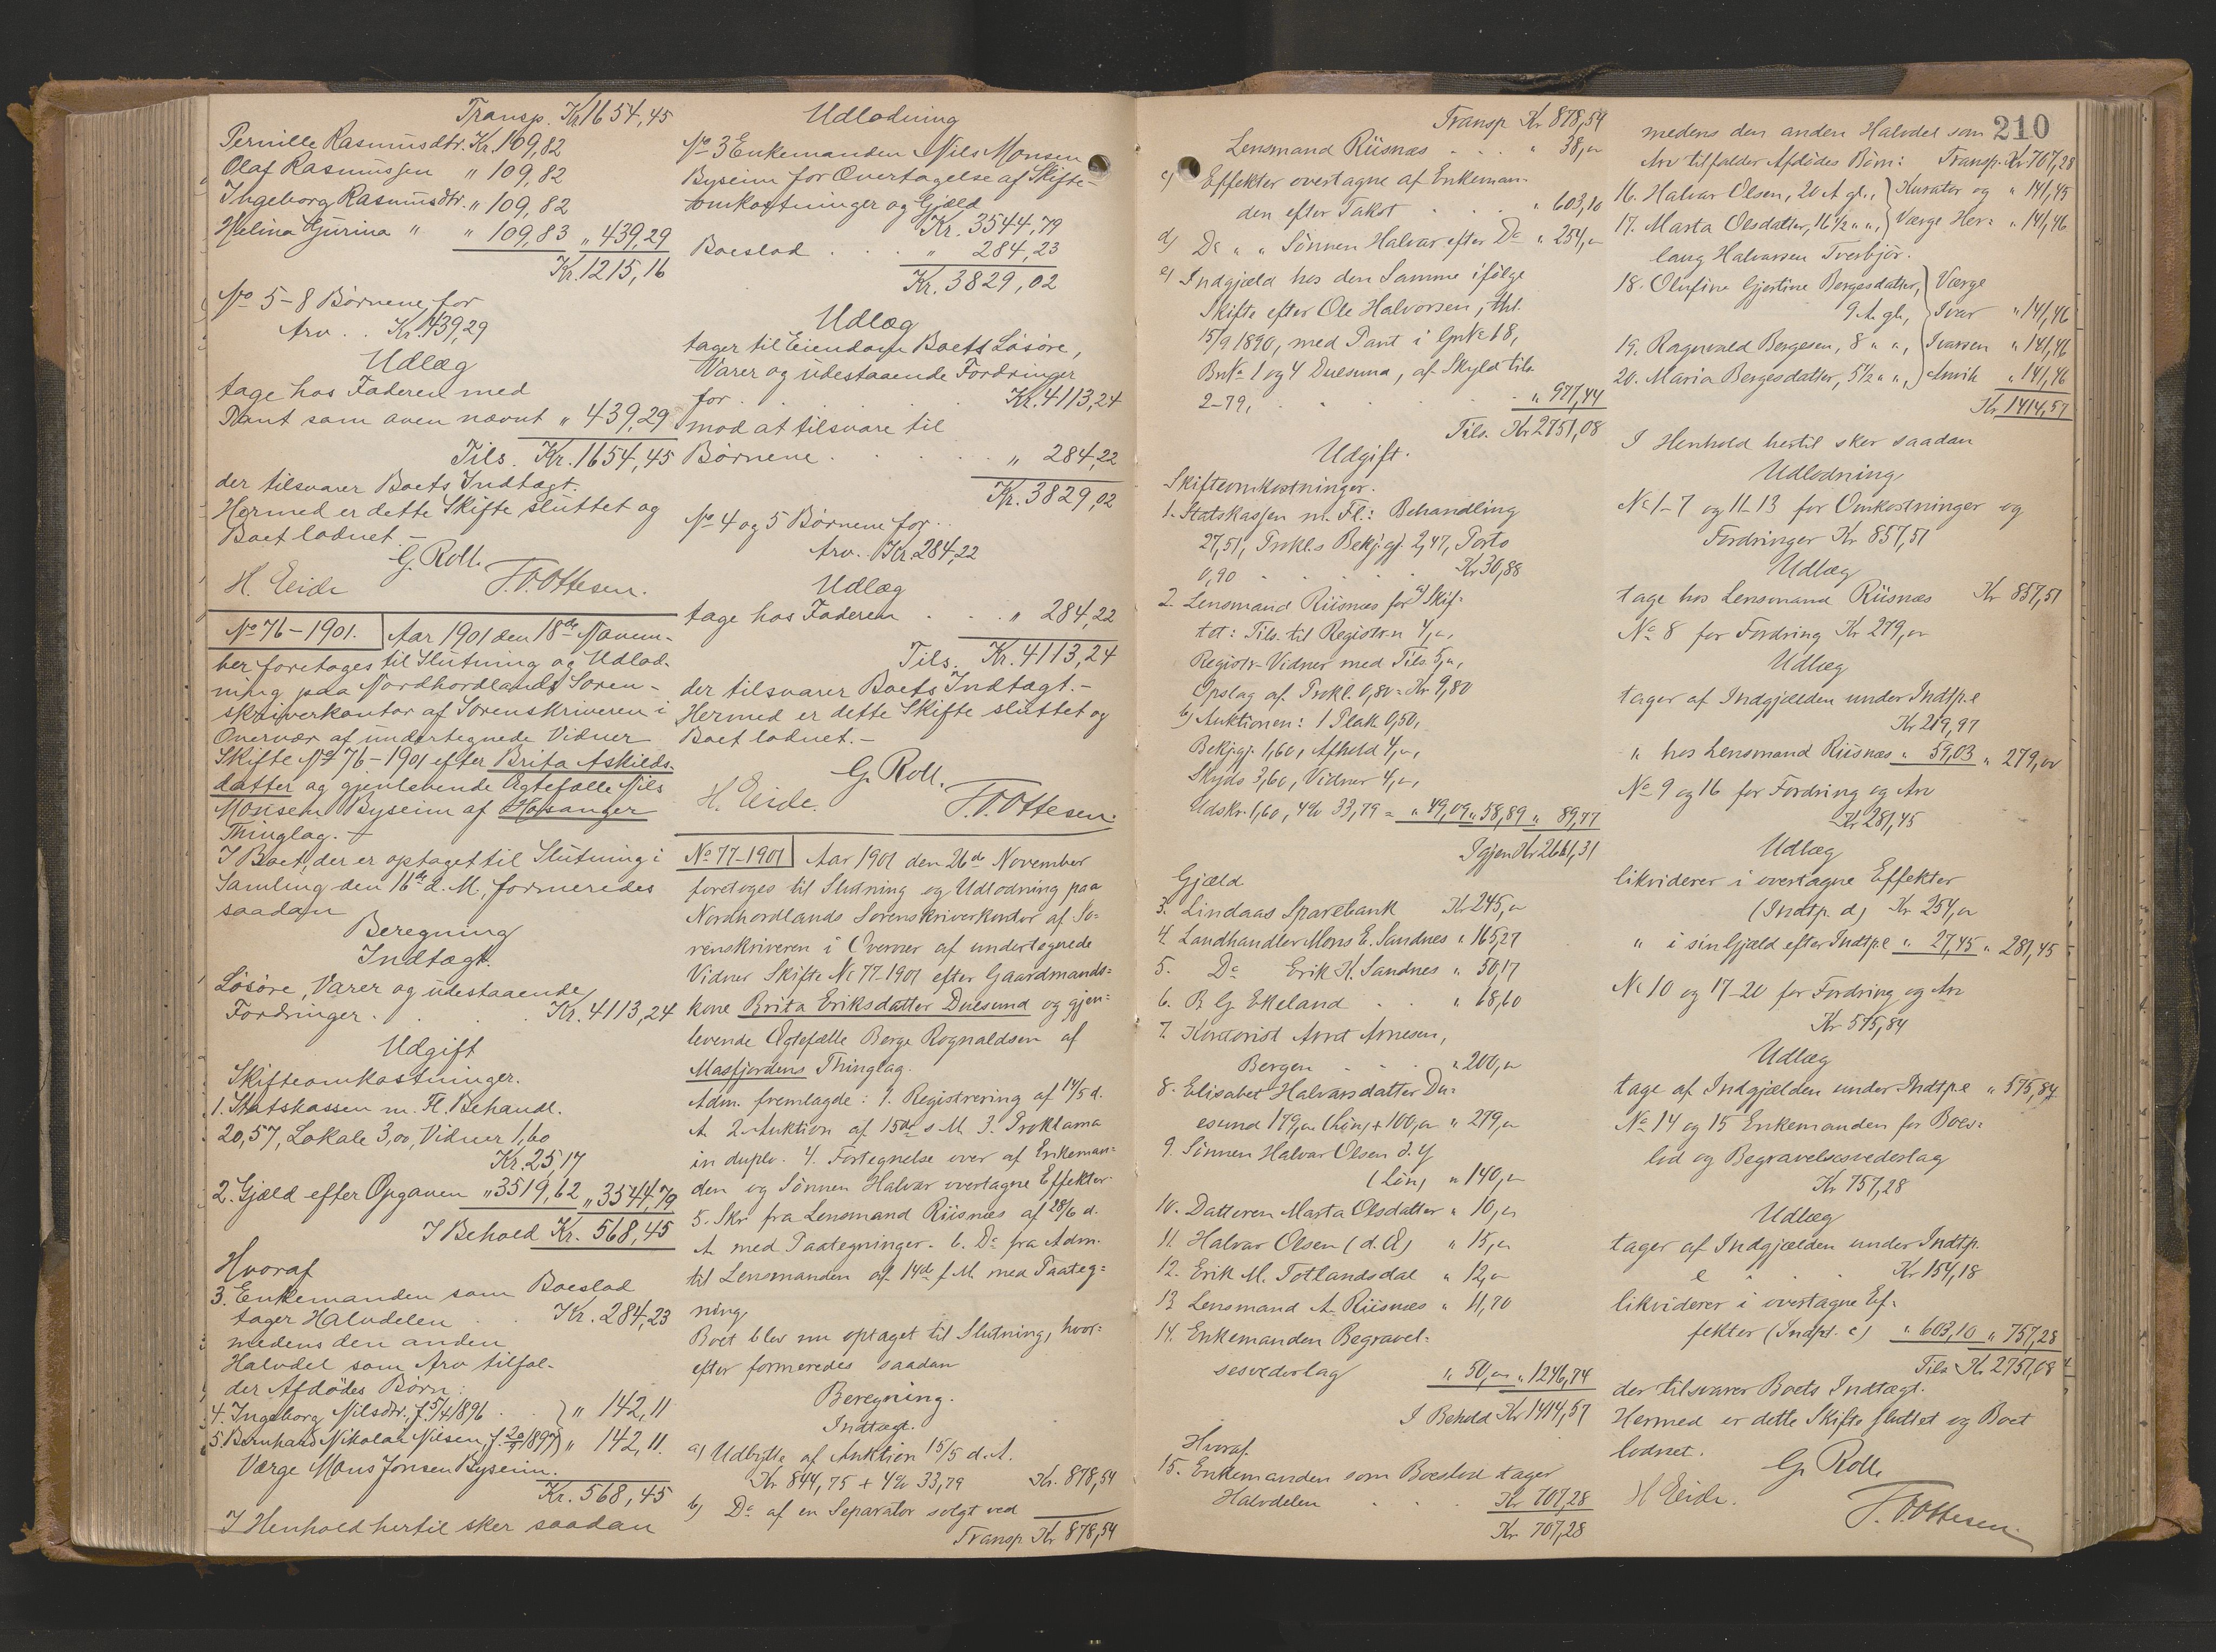 Transp. Kr. 1654,45
Pernille Rasmusdtr. Kr. 109,82
Olaf Rasmussen " 109,82
Ingeborg Rasmusdtr. " 109,82
Helina Gurina " " 109,83 " 439,29
Kr. 1215,16
No 5-8 Børnene for
Arv . . Kr. 439,29
Udlæg
tage hos Faderen med
Pant som oven nævnt " 439,29
Tils. Kr. 1654,45
der tilsvarer Boets Indtægt.
Hermed er dette Skifte sluttet og
Boet lodnet. -
G. Roll.
H. Eide T. O. Ottesen.
No 76-1901. Aar 1901 den 18de Novem-
ber foretoges til Slutning og Udlod-
ning paa Nordhordlands Soren-
skriverkontor af Sorenskriveren i
Overvær af undertegnede Vidner
Skifte No 76-1901 efter Brita Askilds-
datter og gjenlevende Ægtefælle Nils
Monsen Byseim af Hosanger
Thinglag. -
I Boet, der er optaget til Slutning i
Samling den 16de d. M., formeredes
saadan
Beregning
Indtægt.
Løsøre, Varer og udestaaende
Fordringer . . . Kr. 4113,24
Udgift
Skifteomkostninger.
1. Statskassen m. Fl. Behandl.
20,57, Lokale 3,00, Vidner 1,60
Kr. 25,17
2. Gjæld efter Opgaven " 3519,62 " 3544,79
I Behold Kr. 568,45
Hvoraf
3. Enkemanden som Boeslod
tager Halvdelen . . Kr. 284,23
medens den anden
Halvdel som Arv tilfal-
der Afdødes Børn:
4. Ingeborg Nilsdtr., f. 5/4 1896 . . " 142,11
5. Bernhard Nikolai Nilsen, f. 1897 " 142,11.
Værge Mons Jonsen Byseim.
Kr. 568,45
I Henhold hertil sker saadan
Udlodning
No 3 Enkemanden Nils Monsen
Byseim for Overtagelse af Skifte-
omkostninger og Gjæld
Kr. 3544,79
Boeslod . . . " 284,23
Kr. 3829,02
Udlæg
tager til Eiendom Boets Løsøre,
Varer og udestaaende Fordringer
for . . . Kr. 4113,24
mod at tilsvare til
Børnene . . . " 284,22
Kr. 3829,02
No 4 og 5 Børnene for . .
Arv. Kr. 284,22
Udlæg
tage hos Faderen . . . " 284,22
Tils. Kr. 4113,24
der tilsvarer Boets Indtægt. -
Hermed er dette Skifte sluttet og
Boet lodnet. -
G. Roll.
H. Eide. T. O. Ottesen.
No 77-1901 Aar 1901 den 26de November
foretoges til Slutning og Udlodning paa
Nordhordlands Sorenskriverkontor af So-
renskriveren i Overvær af undertegnede
Vidner Skifte No 77-1901 efter Gaardmands-
kone Brita Eriksdatter Duesund og gjen-
levende Ægtefælle Berge Rognaldsen af
Masfjordens Thinglag.
Adm. fremlagde: 1. Registrering af 14/5 d.
A. 2. Auktion af 15de s. M. 3. Proklama
in duplo. 4. Fortegnelse over af Enkeman-
den og Sønnen Halvar overtagne Effekter.
5. Skr. fra Lensmand Riisnæs af 28/6 d.
A. med Paategninger. 6. Do fra Adm.
til Lensmanden af 14de f. M. med Paateg-
ning,
Boet blev nu optaget til Slutning, hvor-
efter formeredes saadan
Beregning.
Indtægt.
a) Udbytte af Auktion 15/5 d. A.
Kr 844,75 + 4% 33,79 Kr. 878,54
b) Do af en Separator solgt ved
Transp. Kr 878,54
Transp Kr 878,54
Lensmand Riisnæs . . . " 38,"
c) Effekter overtagne af Enkeman-
den efter Takst . . . " 603,10
d) Do " " Sønnen Halvar efter Do " 254,"
e) Indgjæld hos den Samme ifølge
Skifte efter Ole Halvorsen, thl.
15/9 1890, med Pant i Gno 68,
Bno 1 og 4 Duesund, af Skyld tils.
2-79, . . . " 977,44
Tils. Kr 2751,08
Udgift.
Skifteomkostninger.
1. Statskassen m. Fl.: Behandling
27,51, Prokl.s Bekj.gj. 2,47, Porto
0,90 . . . Kr 30,88
2. Lensmand Riisnæs for a) Skif-
tet: Tils. til Registr.n 4,",
Registr-Vidner med Tils. 5,",
Opslag af Prokl. 0,80 = Kr 9,80
b) Auktionen: 1 Plak. 0,50,
Bekj.gj. 1,60, Afhold 4,",
Skyds 3,60, Vidner 4,",
Udskr. 1,60, 4% 33,79 = " 49,09 " 58,89 " 89,77
Igjen Kr 2661,31
Gjæld
3. Lindaas Sparebank Kr 245,"
4. Landhandler Mons E. Sandnes " 165,27
5. Do Erik H. Sandnes " 50,17
6. B. G. Ekeland . . " 68,60
7. Kontorist Arnt Arnesen,
Bergen . . . " 200,"
8. Elisabet Halvarsdatter Du-
esund 179,"(Løn) + 100," " 279,"
9. Sønnen Halvar Olsen d. y
(Løn) " 140,"
10. Datteren Marta Olsdatter " 10,"
11. Halvar Olsen (d. Æ) " 15,"
12. Erik M. Totlandsdal " 12,"
13. Lensmand A. Riisnæs " 11,70
14. Enkemanden Begravel-
sesvederlag " 50," " 1246,74
I Behold Kr 1414,57
Hvoraf
15. Enkemanden som Boeslod tager
Halvdelen . . . Kr 707,28
Kr 707,28
210
medens den anden Halvdel som
Arv tilfalder Afdødes Børn: Transp. Kr 707,28
16. Halvar Olsen, 20 A. gl., Kurator og " 141,45
17. Marta Olsdatter, 16 1/2 " ", Værge Her- " 141,46
laug Halvarsen Tverbjør.
18. Olufine Gjertine Bergesdatter, Værge
9 A. gl., Ivar " 141,46
19. Ragnvald Bergesen, 8 " ", Ivarsen " 141,46
20. Maria Bergesdatter, 5 1/2 " ", Anvik " 141,46
Kr 1414,57
I Henhold hertil sker saadan
Udlodning
No 1-7 og 11-13 for Omkostninger og
Fordringer Kr 857,51
Udlæg
tage hos Lensmand Riisnæs Kr 857,51
No 8 for Fordring Kr 279,"
Udlæg
tager af Indgjælden under Indtp. e
Kr 219,97
" hos Lensmand Riisnæs " 59,03 " 279,"
No 9 og 16 for Fordring og Arv
Kr 281,45
Udlæg
likviderer i overtagne Effekter
(Indtp. d) Kr 254,"
" i sin Gjæld efter Indtp. e " 27,45 " 281,45
No 10 og 17-20 for Fordring og Arv
Kr 575,84
Udlæg
tage af Indgjælden under Indtp. e " 575,84
No 14 og 15 Enkemanden for Boes-
lod og Begravelsesvederlag
Kr 757,28
Udlæg
tager af Indgjælden under Indtp.
e . . . Kr 154,18
likviderer i overtagne Ef-
fekter (Indpt. c) " 603,10 " 757,28
Tils Kr 2751,08
der tilsvarer Boets Indtægt.
Hermed er dette Skifte sluttet og Boet
lodnet. G. Roll.
H. Eide. T. O. Ottesen.